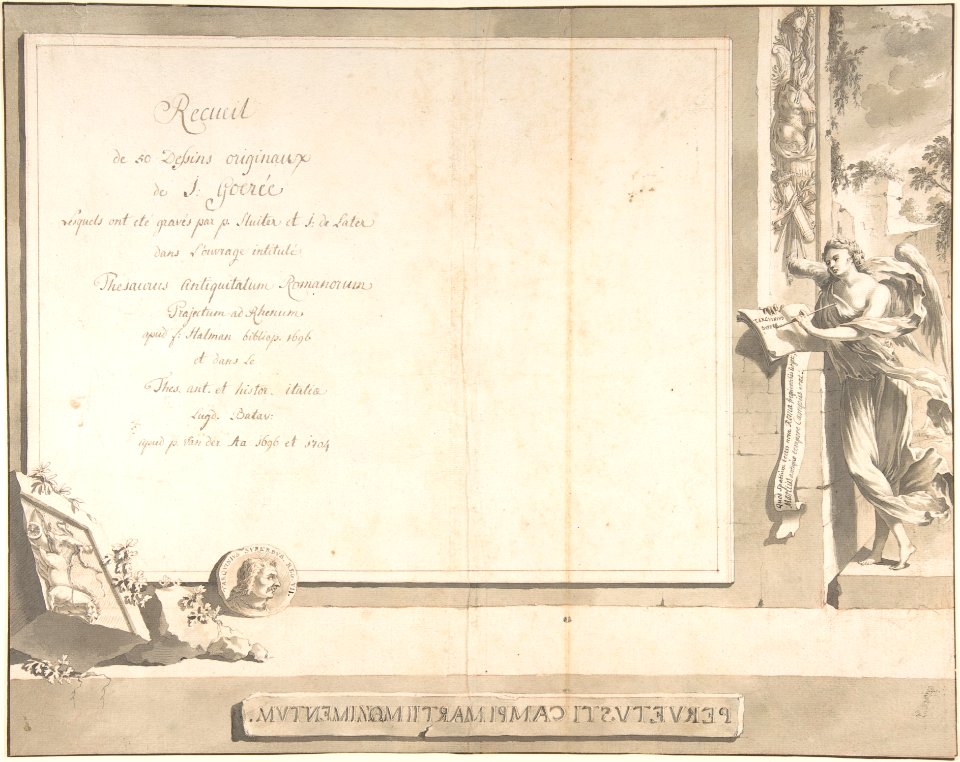 Recueil
de 50 Dessins originaux
de J. Goerée
Lesquels ont eté gravés par p. Sluiter et J. de Later
dans L'ouvrage intitulé
Thesaurus Antiquitatum Romanorum
Trajectum ad Rhenum
apud f. Halman bibliop. 1696
et dans Le
Thes. ant. et histor. italiæ
Lugd. Batav.
apud p. Van der Aa 1696 et 1704
Quod spatium tectis nova Roma
Martius antiquo tempore Campus erat.
PERVETUSTI CAMPI MARTII MONIMENTUM.